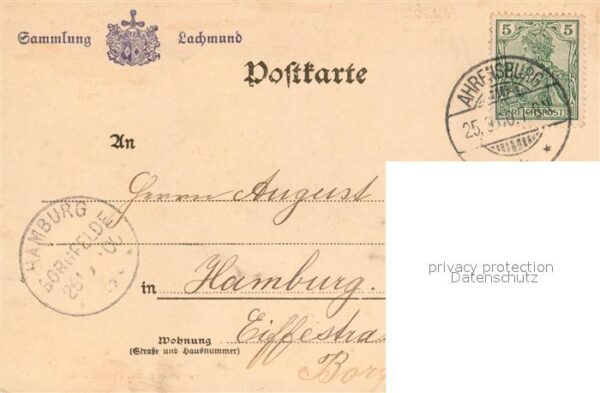 Sammlung Lachmund
5 5
REICHSPOST
Postkarte
AHRENSBURG
25.
An
Herrn August
HAMBURG
BORGFELDE
in Hamburg.
Wohnung
(Straße und Hausnummer)
Eiffestra
Borg
privacy protection
Datenschutz